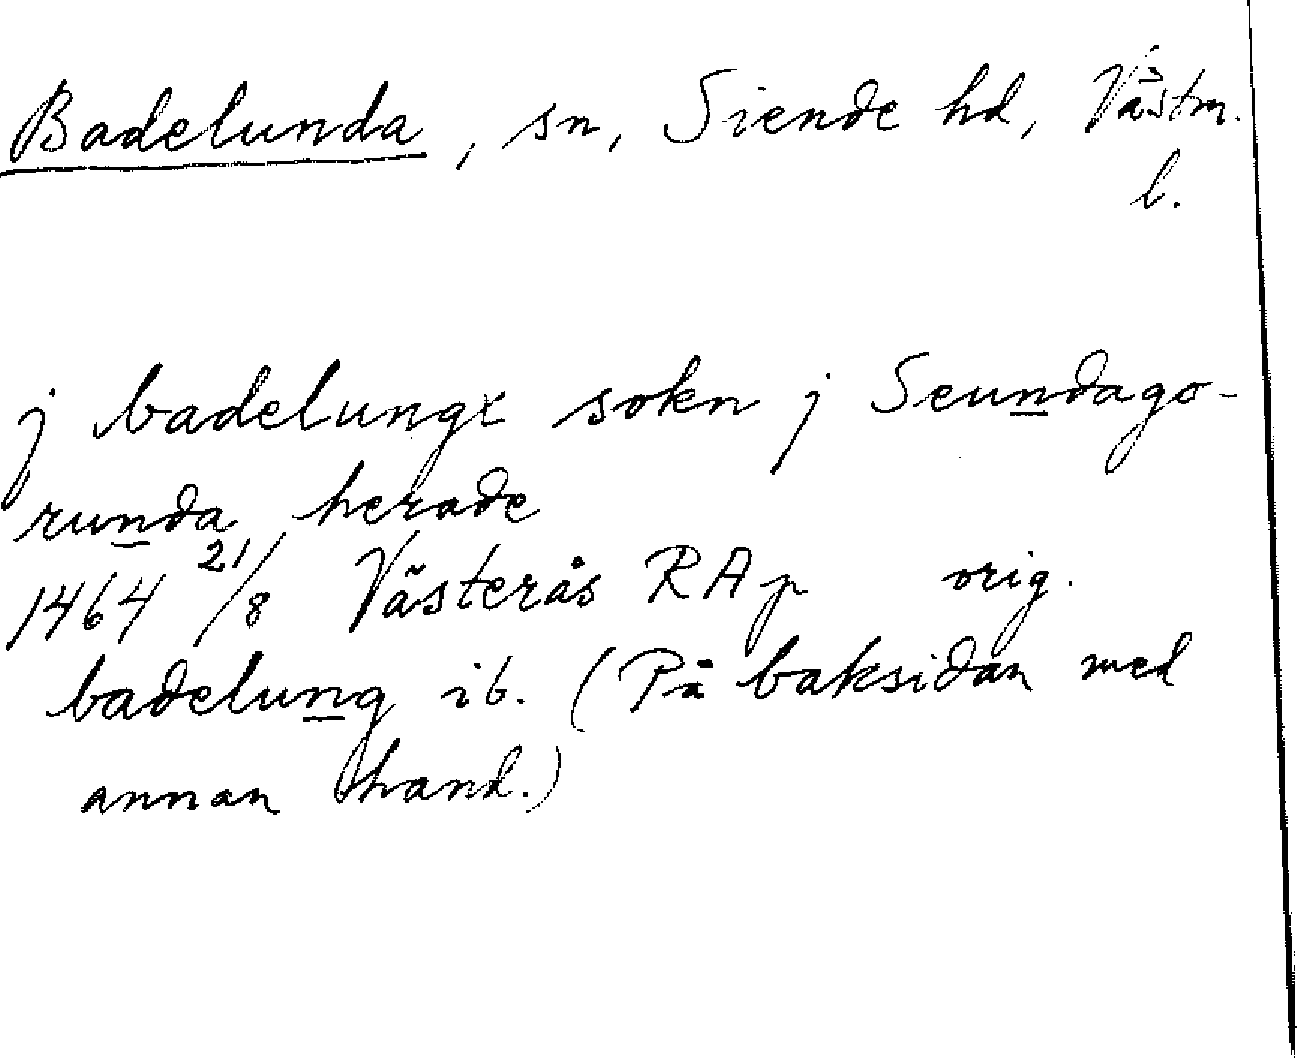 Badelunda, sn, Siende hd, Västm.
l.
j badelunge sokn j Seundago-
runda herade
1464 21/8 Västerås RAp orig.
badelung ib. (På baksidan med
annan hand.)